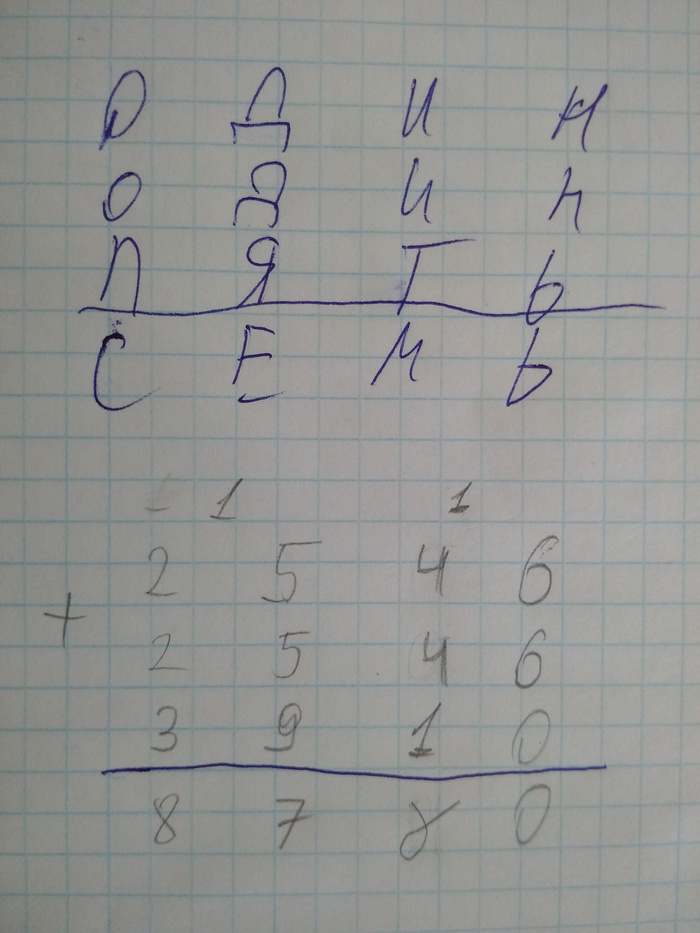 О Д И Н
О Д И Н
П Я Т Ь
С Е М Ь
1 1
2 5 4 6
+
2 5 4 6
3 9 1 0
8 7 8 0